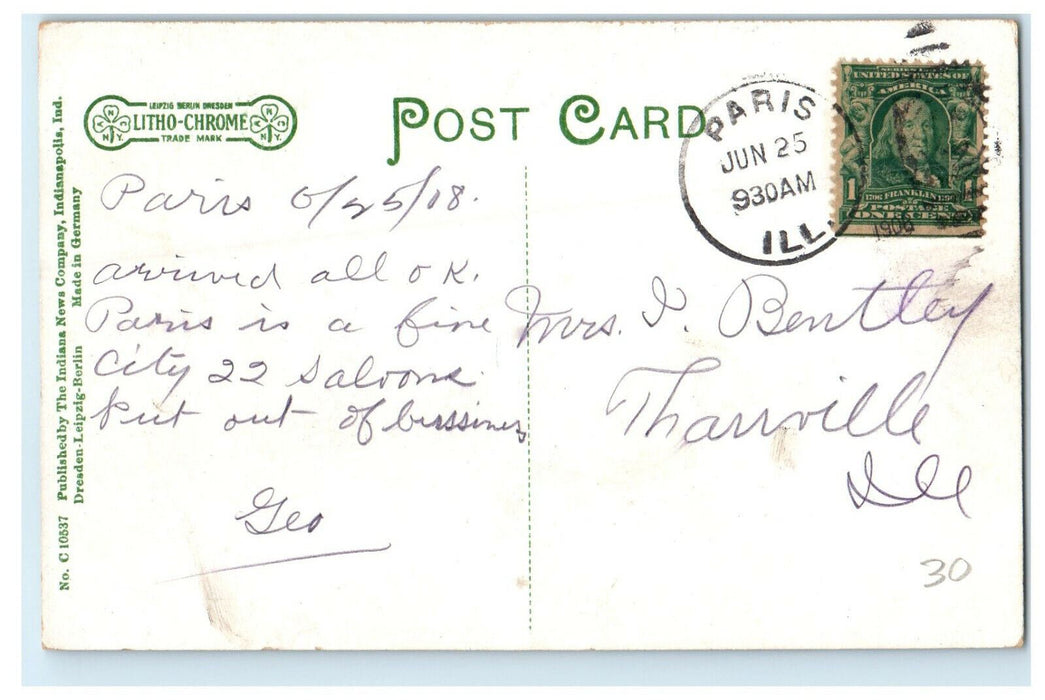 LEIPZIG BERLIN DRESDEN
LITHO-CHROME
TRADE MARK
N Y.
N Y.
POST CARD
PARIS
JUN 25
930AM
ILL.
SERIES
UNITED STATES OF
AMERICA
1
1706 FRANKLIN
POSTAGE
ONE CENT
No. C 10537 Published by The Indiana News Company, Indianapolis, Ind.
Dresden-Leipzig-Berlin Made in Germany
Paris 6/25/08.
arrived all OK.
Paris is a fine
City 22 Saloons
put out of bussiness
Geo
Mrs. I. Bentley
Tharrville
Ill
30